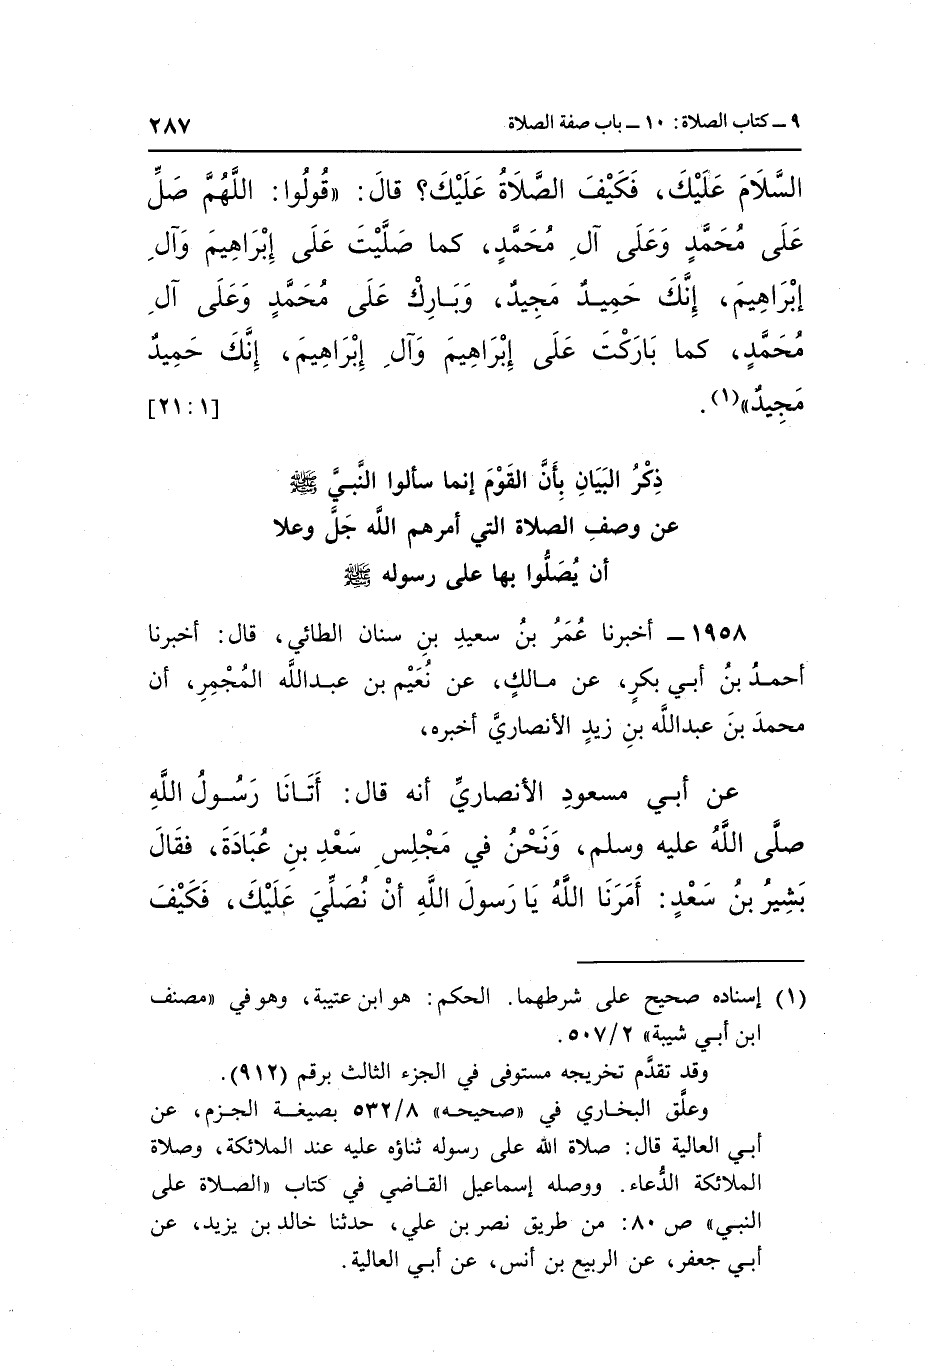 ٩ ــ كتاب الصلاة: ١٠ ــ باب صفة الصلاة ٢٨٧
السَّلَامَ عَلَيْكَ، فَكَيْفَ الصَّلَاةُ عَلَيْكَ؟ قالَ: «قُولُوا: اللَّهُمَّ صَلِّ
عَلَى مُحَمَّدٍ وَعَلَى آلِ مُحَمَّدٍ، كما صَلَّيْتَ عَلَى إِبْرَاهِيمَ وَآلِ
إبْرَاهِيمَ، إِنَّكَ حَمِيدٌ مَجِيدٌ، وَبَارِكْ عَلَى مُحَمَّدٍ وَعَلَى آلِ
مُحَمَّدٍ، كما بَارَكْتَ عَلَى إِبْرَاهِيمَ وَآلِ إِبْرَاهِيمَ، إِنَّكَ حَمِيدٌ
مَجِيدٌ»(١). [٢١:١]
ذِكْرُ البَيَانِ بِأَنَّ القَوْمَ إنما سألوا النَّبيَّ ﷺ
عن وصفِ الصلاة التي أمرهم اللَّه جَلَّ وعلا
أن يُصَلُّوا بها على رسوله ﷺ
١٩٥٨ ــ أخبرنا عُمَرُ بنُ سعيدِ بنِ سنان الطائي، قال: أخبرنا
أحمدُ بنُ أبي بكرٍ، عن مالكٍ، عن نُعَيْم بن عبداللَّه المُجْمِرِ، أن
محمدَ بنَ عبداللَّه بنِ زيدٍ الأنصاريَّ أخبره،
عن أبي مسعودِ الأنصاريِّ أنه قال: أَتَانَا رَسُولُ اللَّهِ
صلَّى اللَّهُ عليه وسلم، وَنَحْنُ في مَجْلِسِ سَعْدِ بنِ عُبَادَةَ، فقَالَ
بَشِيرُ بنُ سَعْدٍ: أَمَرَنَا اللَّهُ يَا رَسولَ اللَّهِ أنْ نُصَلِّيَ عَلَيْكَ، فَكَيْفَ
(١) إسناده صحيح على شرطهما. الحكم: هو ابن عتيبة، وهو في «مصنف
ابن أبي شيبة» ٥٠٧/٢.
وقد تقدَّم تخريجه مستوفى في الجزء الثالث برقم (٩١٢).
وعلَّق البخاري في «صحيحه» ٥٣٢/٨ بصيغة الجزم، عن
أبي العالية قال: صلاة الله على رسوله ثناؤه عليه عند الملائكة، وصلاة
الملائكة الدُّعاء. ووصله إسماعيل القاضي في كتاب «الصلاة على
النبي» ص ٨٠: من طريق نصر بن علي، حدثنا خالد بن يزيد، عن
أبي جعفر، عن الربيع بن أنس، عن أبي العالية.